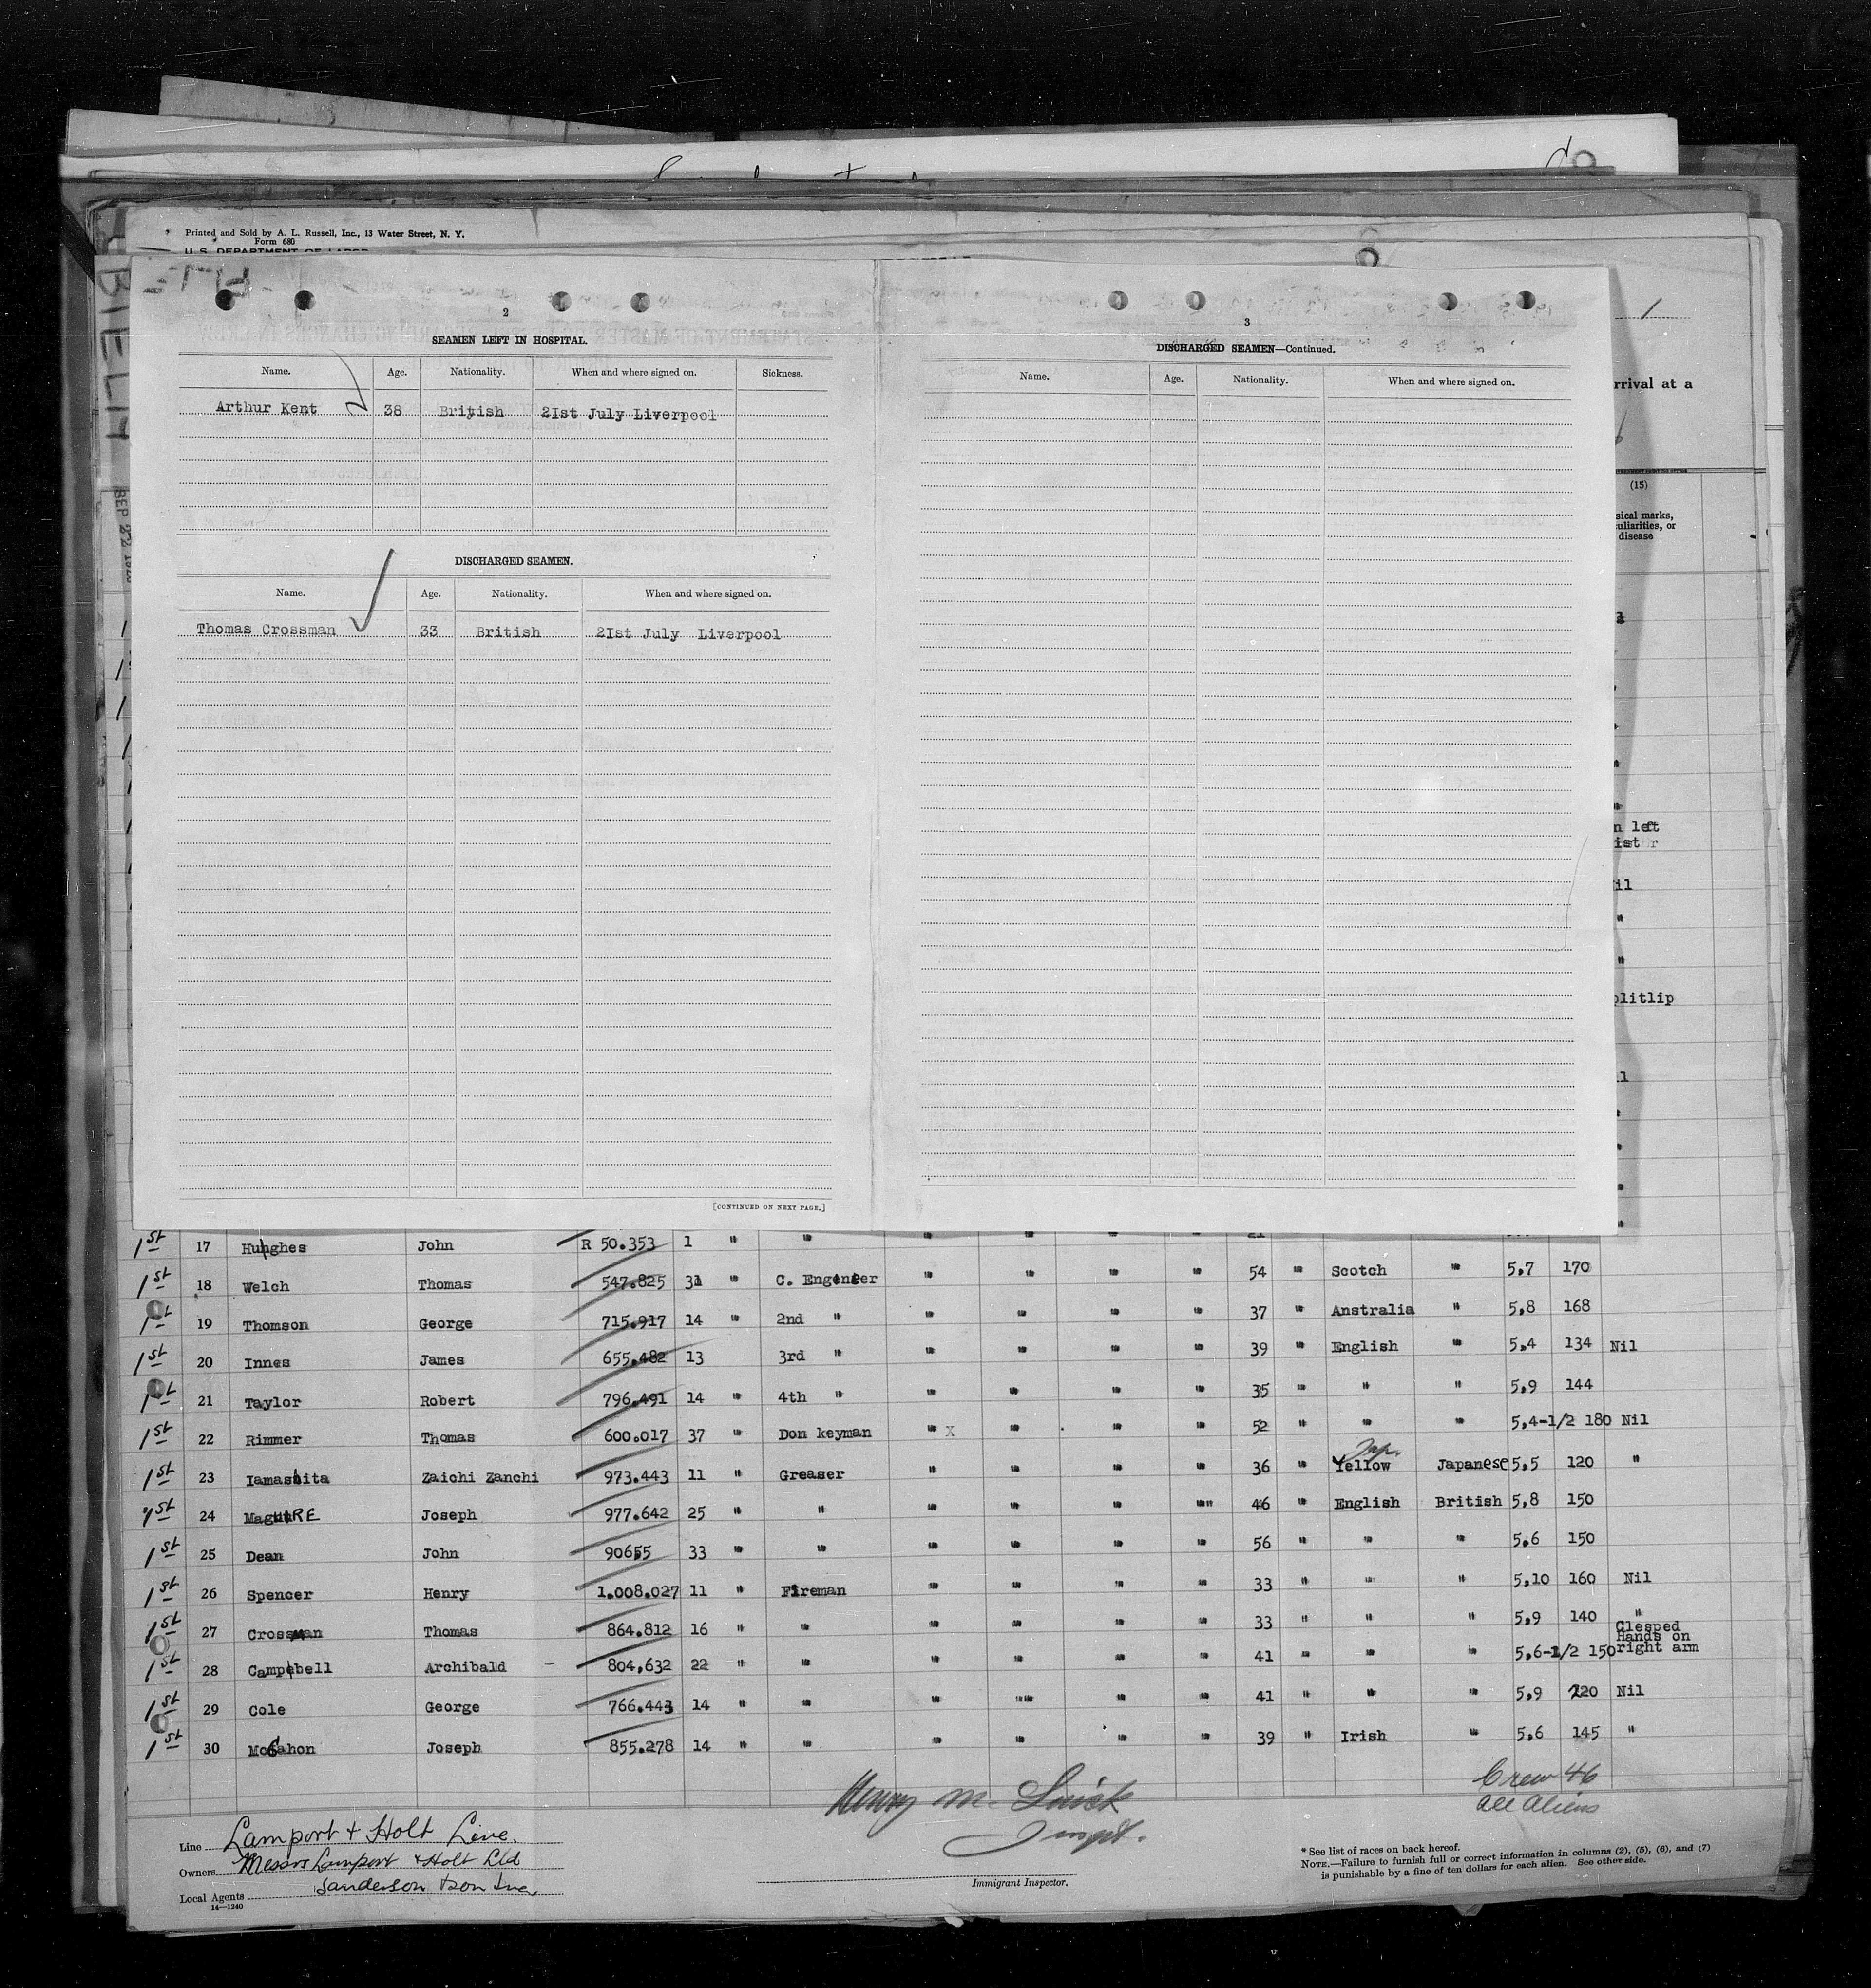 Printed and Sold by A. L. Russell, Inc., 13 Water Street, N. Y.
Form 680
U. S. DEPARTMENT OF LABOR
1
rrival at a
(15)
sical marks,
culiarities, or
disease
BIELA
SEP 22
2
SEAMEN LEFT IN HOSPITAL.
Name. Age. Nationality. When and where signed on. Sickness.
Arthur Kent 38 British 2Ist July Liverpool
DISCHARGED SEAMEN.
Name. Age. Nationality. When and where signed on.
Thomas Crossman 33 British 2Ist July Liverpool
[CONTINUED ON NEXT PAGE.]
3
DISCHARGED SEAMEN—Continued.
Name. Age. Nationality. When and where signed on.
n left
ist r
il
"
"
plitlip
il
1st 17 Hughes John R 50.353 1 " " " " " " 21
1st 18 Welch Thomas 547.825 31 " C. Engeneer " " " " 54 " Scotch " 5,7 170
1st 19 Thomson George 715.917 14 " 2nd " " " " " 37 " Australia " 5,8 168
1st 20 Innes James 655.482 13 3rd " " " " " 39 " English " 5,4 134 Nil
1st 21 Taylor Robert 796.491 14 " 4th " " " " " 35 " " " 5,9 144
1st 22 Rimmer Thomas 600.017 37 " Don keyman " x " " " 52 " " " 5,4-1/2 180 Nil
1st 23 Iamashita Zaichi Zanchi 973.443 11 " Greaser " " " " 36 " Yellow Jap. Japanese 5,5 120 "
1st 24 MaguIRE Joseph 977.642 25 " " " " " " 46 " English British 5,8 150
1st 25 Dean John 90655 33 " " " " " " 56 " " " 5,6 150
1st 26 Spencer Henry 1.008.027 11 " Fireman " " " " 33 " " " 5,10 160 Nil
1st 27 Crossman Thomas 864.812 16 " " " " " " 33 " " " 5,9 140 "
1st 28 Campbell Archibald 804,632 22 " " " " " " 41 " " " 5,6-1/2 150 Clesped Hands on right arm
1st 29 Cole George 766.443 14 " " " " " " 41 " " " 5,9 120 Nil
1st 30 McGahon Joseph 855.278 14 " " " " " " 39 " Irish " 5,6 145 "
Crew 46
all aliens
Inspt.
Immigrant Inspector.
Line Lamport & Holt Line.
Owners Messrs Lamport & Holt Ltd
Local Agents Sanderson & Son Inc,
14—1240
* See list of races on back hereof.
NOTE.—Failure to furnish full or correct information in columns (2), (5), (6), and (7)
is punishable by a fine of ten dollars for each alien. See other side.